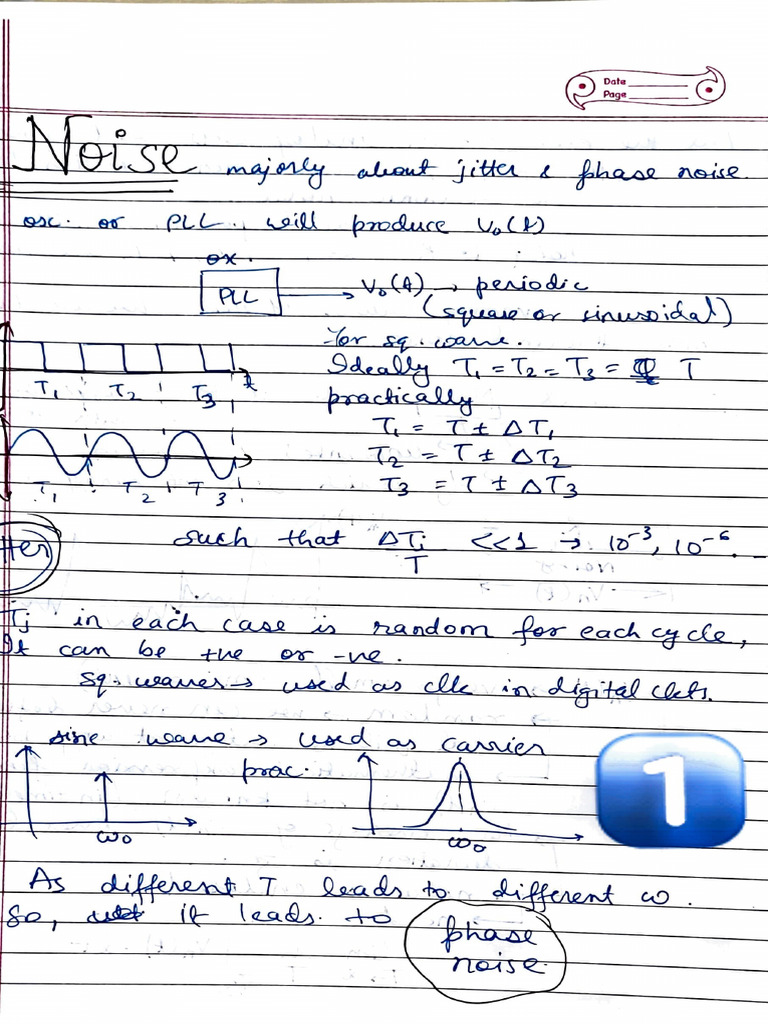 Date
Page
Noise majorly about jitter & phase noise.
osc. or PLL will produce Vo(t)
PLL → Vo(t) → periodic
(square or sinusoidal)
for sq. wave.
Ideally T1 = T2 = T3 = T
practically
T1 = T ± ΔT1
T2 = T ± ΔT2
T3 = T ± ΔT3
T1 T2 T3 t
T1 T2 T3
tter
such that ΔTi/T <<1 → 10⁻³, 10⁻⁶.
Tj in each case is random for each cycle,
It can be +ve or -ve.
sq. waves → used as clk in digital ckts.
sine wave → used as carrier
prac.
ω0
ω0
1
As different T leads to different ω.
so, it leads to phase
noise